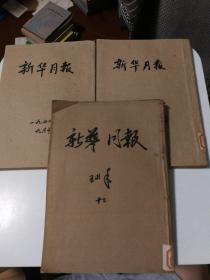 新华月报
一九七
九月
新华月报
新華月報
十二